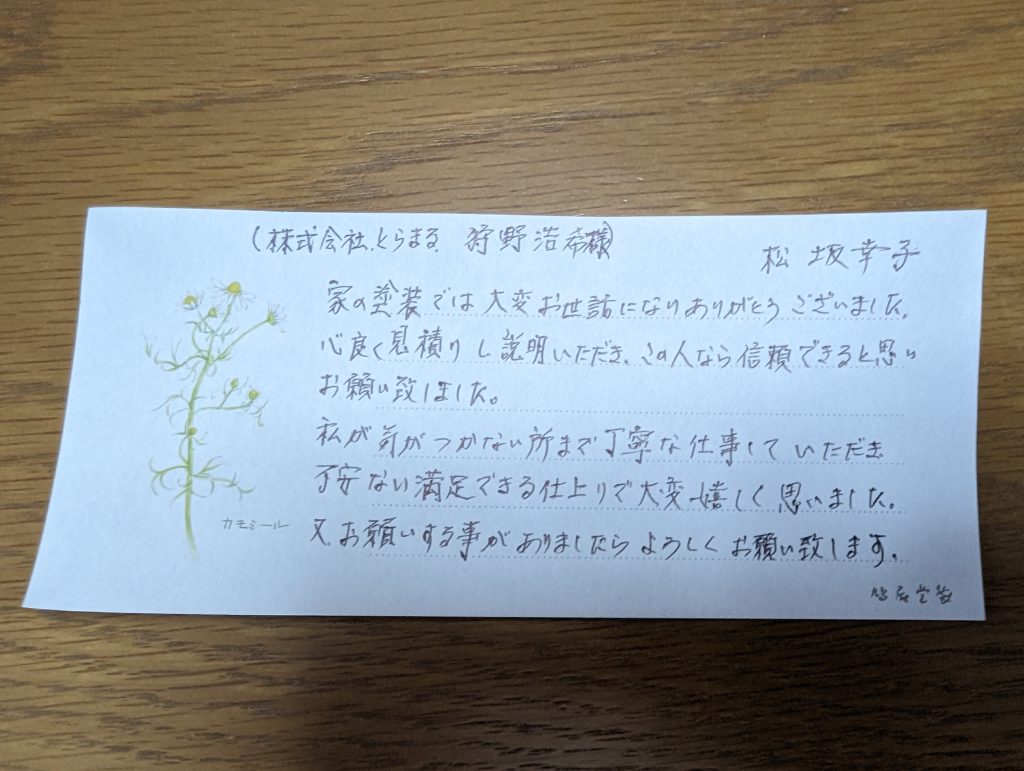 (株式会社.とらまる 狩野浩希様)
松坂幸子
家の塗装では大変お世話になりありがとうございました。
心良く見積りし説明いただき、この人なら信頼できると思い
お願い致しました。
私が気がつかない所まで丁寧な仕事していただき
不安ない満足できる仕上りで大変嬉しく思いました。
又、お願いする事がありましたらよろしくお願い致します。
カモミール
鳩居堂製